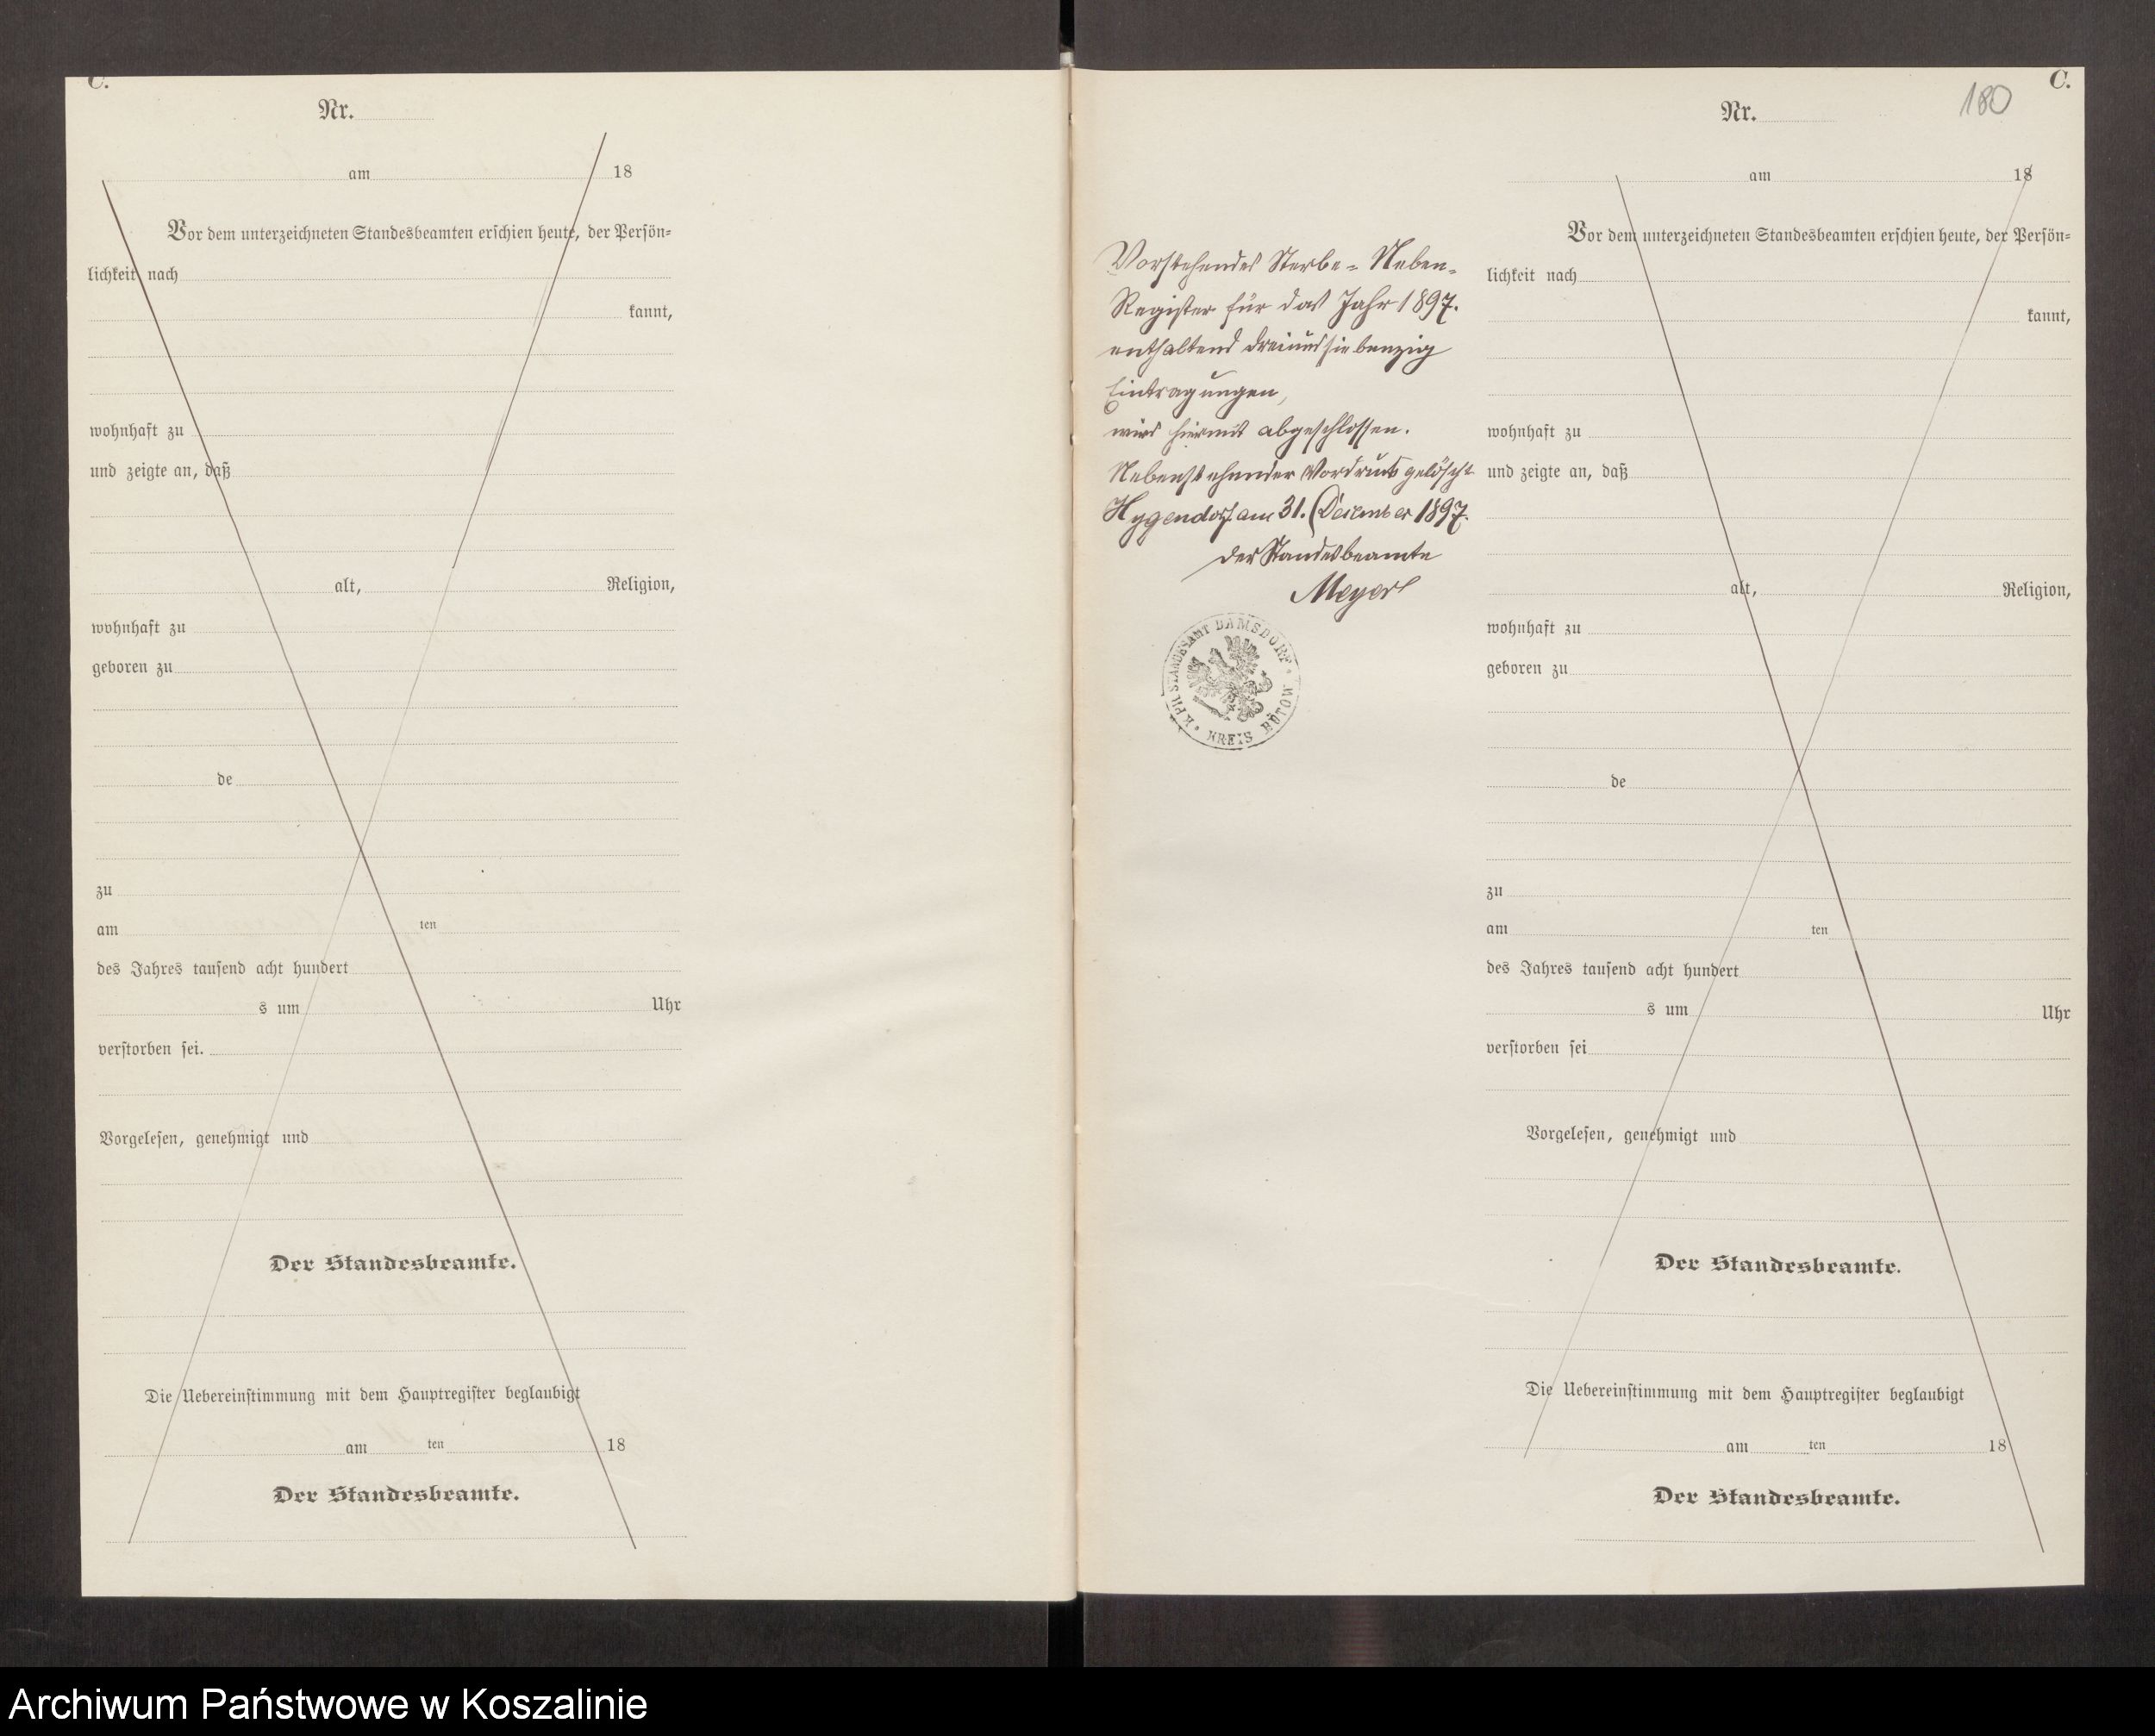 C.
Nr.
am 18
Vor dem unterzeichneten Standesbeamten erschien heute, der Persön=
lichkeit nach
kannt,
wohnhaft zu
und zeigte an, daß
alt, Religion,
wohnhaft zu
geboren zu
de
zu
am ten
des Jahres tausend acht hundert
s um Uhr
verstorben sei.
Vorgelesen, genehmigt und
Der Standesbeamte.
Die Uebereinstimmung mit dem Hauptregister beglaubigt
am ten 18
Der Standesbeamte.
Vorstehendes Sterbe=Neben=
Register für das Jahr 1897.
enthaltend dreiundsiebenzig
Eintragungen,
wird hiermit abgeschlossen.
Nebenstehender Vordruck gelöscht
Hygendorf am 31. December 1897.
der Standesbeamte
Meyer
K. PR. STANDESAMT DAMSDORF * KREIS BÜTOW. *
C.
180
Nr.
am 18
Vor dem unterzeichneten Standesbeamten erschien heute, der Persön=
lichkeit nach
kannt,
wohnhaft zu
und zeigte an, daß
alt, Religion,
wohnhaft zu
geboren zu
de
zu
am ten
des Jahres tausend acht hundert
s um Uhr
verstorben sei
Vorgelesen, genehmigt und
Der Standesbeamte.
Die Uebereinstimmung mit dem Hauptregister beglaubigt
am ten 18
Der Standesbeamte.
Archiwum Państwowe w Koszalinie